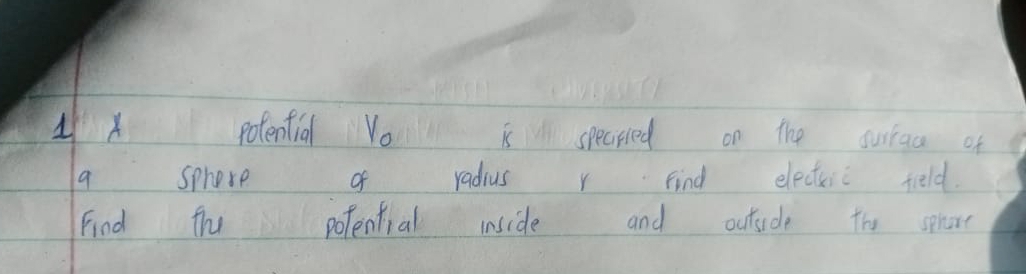 1 A potential V₀ is specified on the surface of
a sphere of radius r. Find electric field.
Find the potential inside and outside the sphere